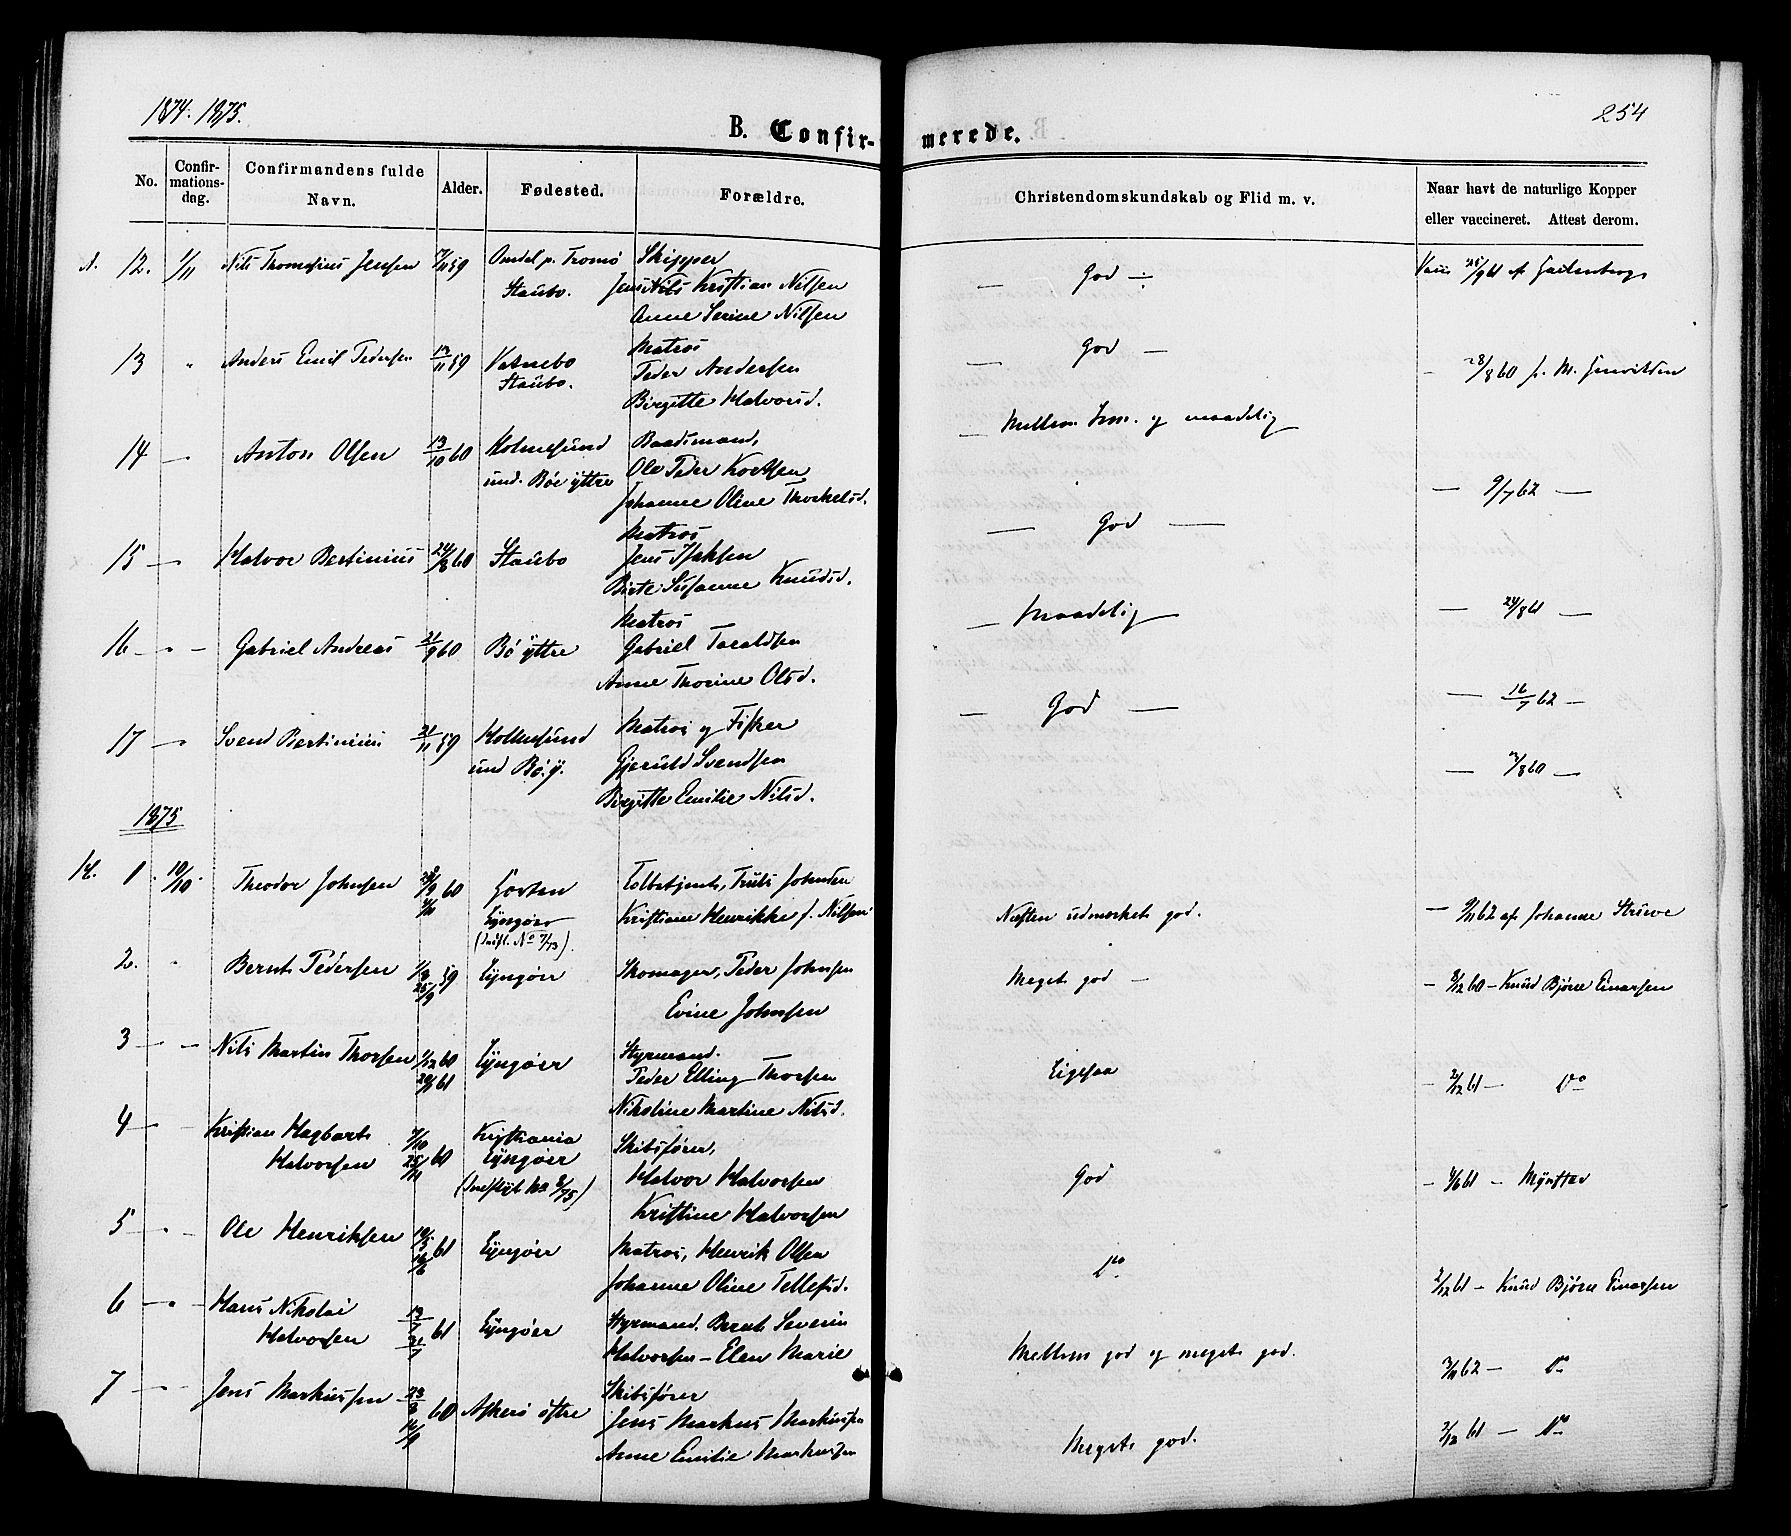 1874. 1875.
254
B. Confirmerede.
No.
Confirmationsdag.
Confirmandens fulde Navn.
Alder.
Fødested.
Forældre.
Christendomskundskab og Flid m. v.
Naar havt de naturlige Kopper eller vaccineret. Attest derom.
12. 1/11 Nils Thomesius Jensen 7/11 59 Omdel p. Tromø Skipper
Staubo. Jens Nils Kristian Nilsen
Anne Serine Nilsen
— God
13 " Anders Emil Pedersen 13/11 59 Vatnebo Matros
Staubo. Peder Andersen
Birgitte Halvorsd.
— God — — 28/8 60
14 — Anton Olsen 13/10 60 Holmesund Baadsmand,
und. Bøe yttre Ole Peder
Johanne Oline Thorkelsd.
— Mellem og maadelig — 9/7 62 —
15 — Halvor Bertinius 24/8 60 Staubo Matros
Jens Isaksen
Birte Susanne Knudsd.
— God — — 24/8 61 —
16 — " — Gabriel Andreas 21/9 60 Bø yttre Matros
Gabriel Taraldsen
Anne Thorine Olsd.
— Maadelig — 16/7 62 —
17 — " Svend Bertinius 21/11 59 Holmesund Matros og Fisker
und Bø. y. Gjeruld Svendsen
Birgitte Emilie Nilsd.
— God — — /8 60 —
1875
1. 10/10. Theodor Johnsen /9 60 Horten Toldbetjent, Truls Johnsen
Lyngøer Kristiane Henrikke f. Nilsen
(Indfl. No 7/73).
Næsten udmerket god. — 9/11 62 af Johanne Struve
2. " Bernt Pedersen 59 Lyngøer Skomager, Peder Johnsen
25/9 Evine Johnsen
Meget god — — /12 60 — Knud Bjørn Einarsen
3 — " — Nils Martin Thorsen 1/12 60 Lyngøer Styrmand.
61 Peder Elling Thorsen
Nikoline Martine Nilsd.
Ligesaa — 2/12 61 — Do
4 — " — Kristian Hagbart 7/10 Kristiania Skibsfører,
Halvorsen 25/11 60 Lyngøer Halvor Halvorsen
(Indflyt No 2/75) Kristine Halvorsen
God — 4/6 61 — Mynster
5 — " — Ole Henriksen 61 Lyngøer Matros, Henrik Olsen
Johanne Oline Tellefsd.
Do 2/12 61 — Knud Bjørn Einarsen
6 — " — Hans Nikolai 13/7 Lyngøer Styrmand. Bernt Severin
Halvorsen 61 Halvorsen — Elen Marie
Mellem god og meget god. 62 — Do
7 — " — Jens Markussen 23/ 60 Askerø østre Skibsfører
/9 Jens Markus Markussen
Anne Emilie Markussen
Meget god. 2/12 61 — Do